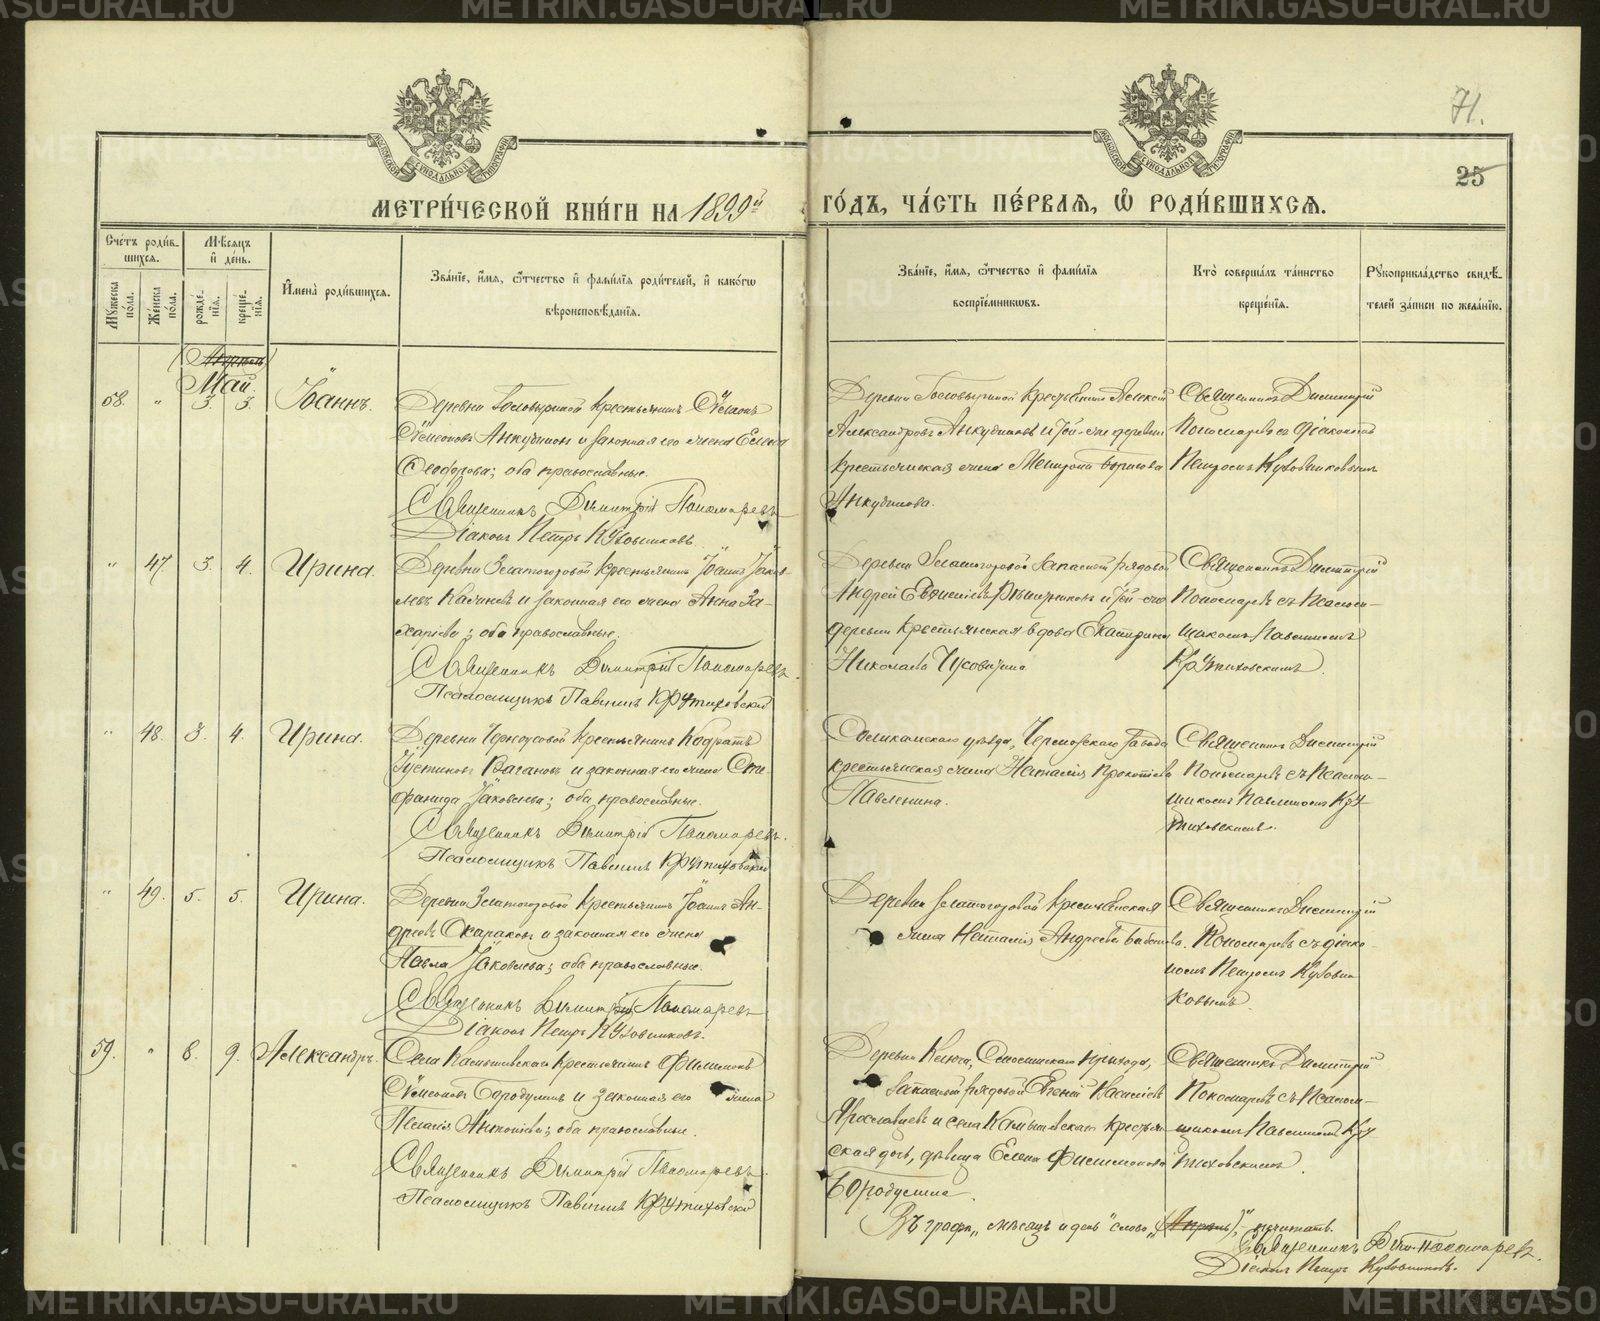 71.
25
МЕТРИ́ЧЕСКОЙ КНИ́ГИ НА 1899й ГО́ДЪ, ЧА́СТЬ ПЕ́РВАѦ, Ѽ РОДИ́ВШИХСѦ.
Сче́тъ роди́в-
шихсѧ.
Мѣ́сѧцъ
и҆ де́нь.
Мꙋ́жеска
по́ла.
Же́нска
по́ла.
рожде́-
нїѧ.
креще́-
нїѧ.
И҆мена̀ роди́вшихсѧ.
Зва́нїе, и҆́мѧ, ѻ҆́тчество и҆ фамѝлїѧ роди́телей, и҆ како́гѡ
вѣроисповѣ́данїѧ.
Зва́нїе, и҆́мѧ, ѻ҆́тчество и҆ фами́лїѧ
воспрїе́мникѡвъ.
Кто̀ соверша́лъ та́инство
креще́нїѧ.
Рꙋкоприкла́дство свидѣ́-
телей за́писи по жела́нїю.
Май.
58. " 3. 3. Іоаннъ.
Деревни Головыриной крестьянинъ Сѵмеонъ
Сѵмеоновъ Анкудиновъ и законная его жена Елена
Ѳеодорова; оба православные.
Священникъ Димитрій Пономаревъ
Діаконъ Петръ Кузовниковъ.
Деревни Головыриной крестьянинъ Алексѣй
Александровъ Анкудиновъ и той-же деревни
крестьянская жена Борисова
Анкудинова.
Священникъ Димитрій
Пономаревъ съ діакономъ
Петромъ Кузовниковымъ
" 47. 3. 4. Ирина.
Деревни Златогоровой крестьянинъ Іоаннъ Іаков-
левъ и законная его жена Анна За-
харіева; оба православные.
Священникъ Димитрій Пономаревъ.
Псаломщикъ Павлинъ Крутиховскій
Деревни Златогоровой запасной рядовой
Андрей и той-же
деревни крестьянская вдова Екатерина
Николаева Чусовитина
Священникъ Димитрій
Пономаревъ съ Псалом-
щикомъ Павлиномъ
Крутиховскимъ.
" 48. 3. 4. Ирина.
Деревни Черноусовой крестьянинъ Кодратъ
Іустиновъ и законная его жена Сте-
фанида Іаковлева; оба православные.
Священникъ Димитрій Пономаревъ.
Псаломщикъ Павлинъ Крутиховскій
Соликамскаго уѣзда, Чермозскаго завода
крестьянская жена Наталія Прокопіева
Павленина.
Священникъ Димитрій
Пономаревъ съ Псалом-
щикомъ Павлиномъ Кру-
тиховскимъ.
" 49. 5. 5. Ирина.
Деревни Златогоровой крестьянинъ Іоаннъ Ан-
дреевъ и законная его жена
Павла Іаковлева; оба православные.
Священникъ Димитрій Пономаревъ
Діаконъ Петръ Кузовниковъ.
Деревни Златогоровой крестьянская
жена Наталія Андреева
Священникъ Димитрій
Пономаревъ съ діако-
номъ Петромъ Кузовни-
ковымъ
59. " 8. 9. Александръ.
Села Камышевскаго крестьянинъ Филимонъ
Сѵмеоновъ Бородулинъ и законная его жена
Антоніева; оба православные.
Священникъ Димитрій Пономаревъ.
Псаломщикъ Павлинъ Крутиховскій
Деревни прихода,
запасной рядовой Евгеній Василіевъ
Ярославцевъ и села Камышевскаго крестьян-
ская дочь, дѣвица Елена Филимонова
Бородулина.
Священникъ Димитрій
Пономаревъ съ Псалом-
щикомъ Павлиномъ Кру-
тиховскимъ.
Въ графѣ „мѣсяцъ и день" слово „(Апрѣль)", не читать.
Священникъ Дим. Пономаревъ.
Діаконъ Петръ Кузовниковъ.
METRIKI.GASO-URAL.RU